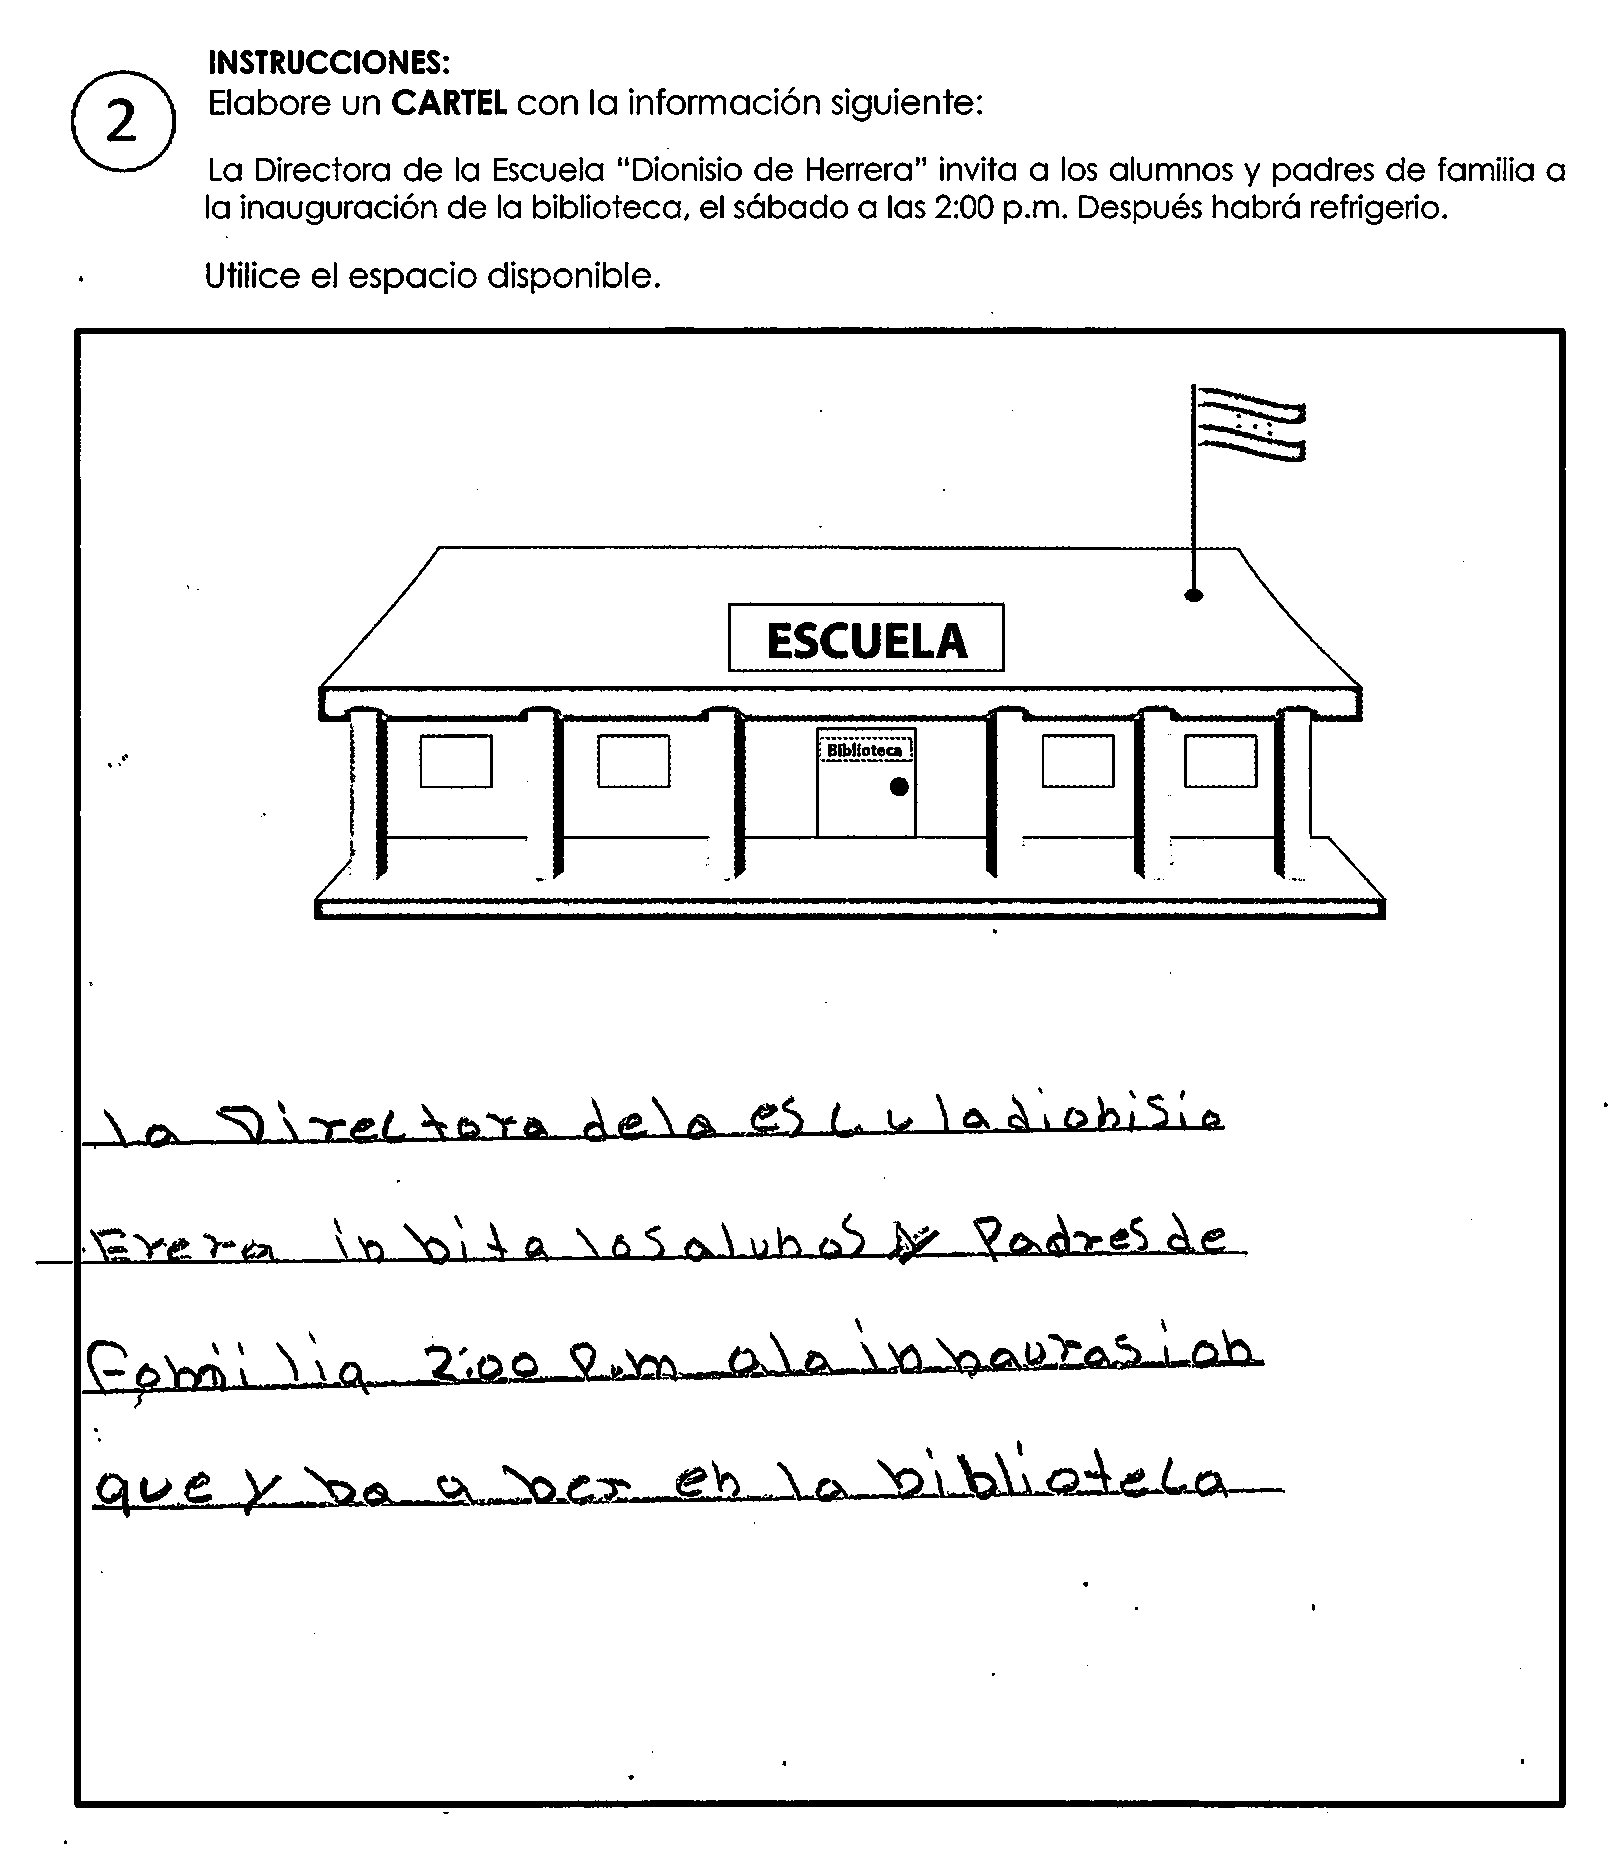 INSTRUCCIONES:
2
Elabore un CARTEL con la información siguiente:
La Directora de la Escuela "Dionisio de Herrera" invita a los alumnos y padres de familia a
la inauguración de la biblioteca, el sábado a las 2:00 p.m. Después habrá refrigerio.
Utilice el espacio disponible.
ESCUELA
Biblioteca
la Directora de la escula dionisio
Erera inbita los alunos y Padres de
Familia 2:00 P.m a la innaurasion
que y ba a ber en la biblioteca